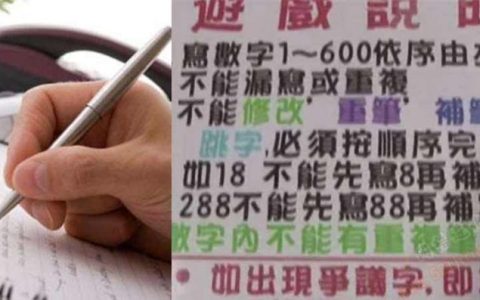 遊戲說明
寫數字1~600依序由左
不能漏寫或重複
不能修改,重筆,補筆
跳字,必須按順序完
如18 不能先寫8再補
288不能先寫88再補
數字內不能有重複筆
•如出現爭議字,即